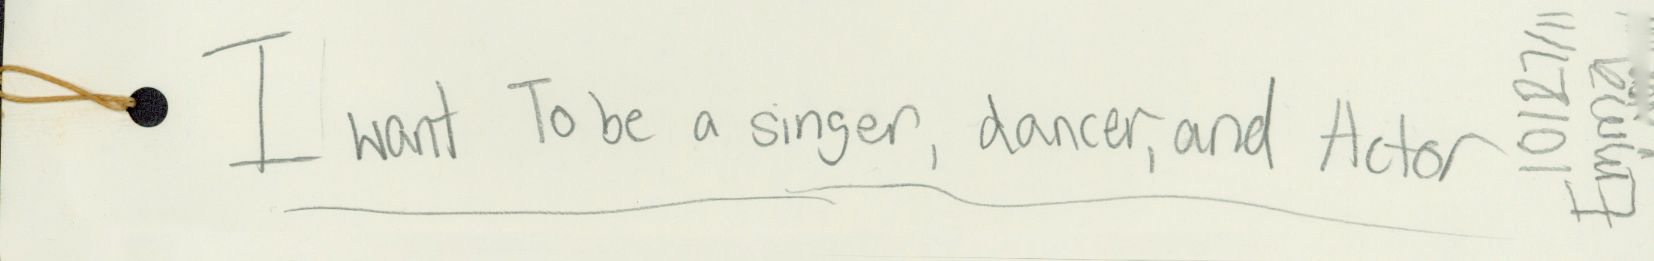 I want To be a singer, dancer, and Actor
10/27/11